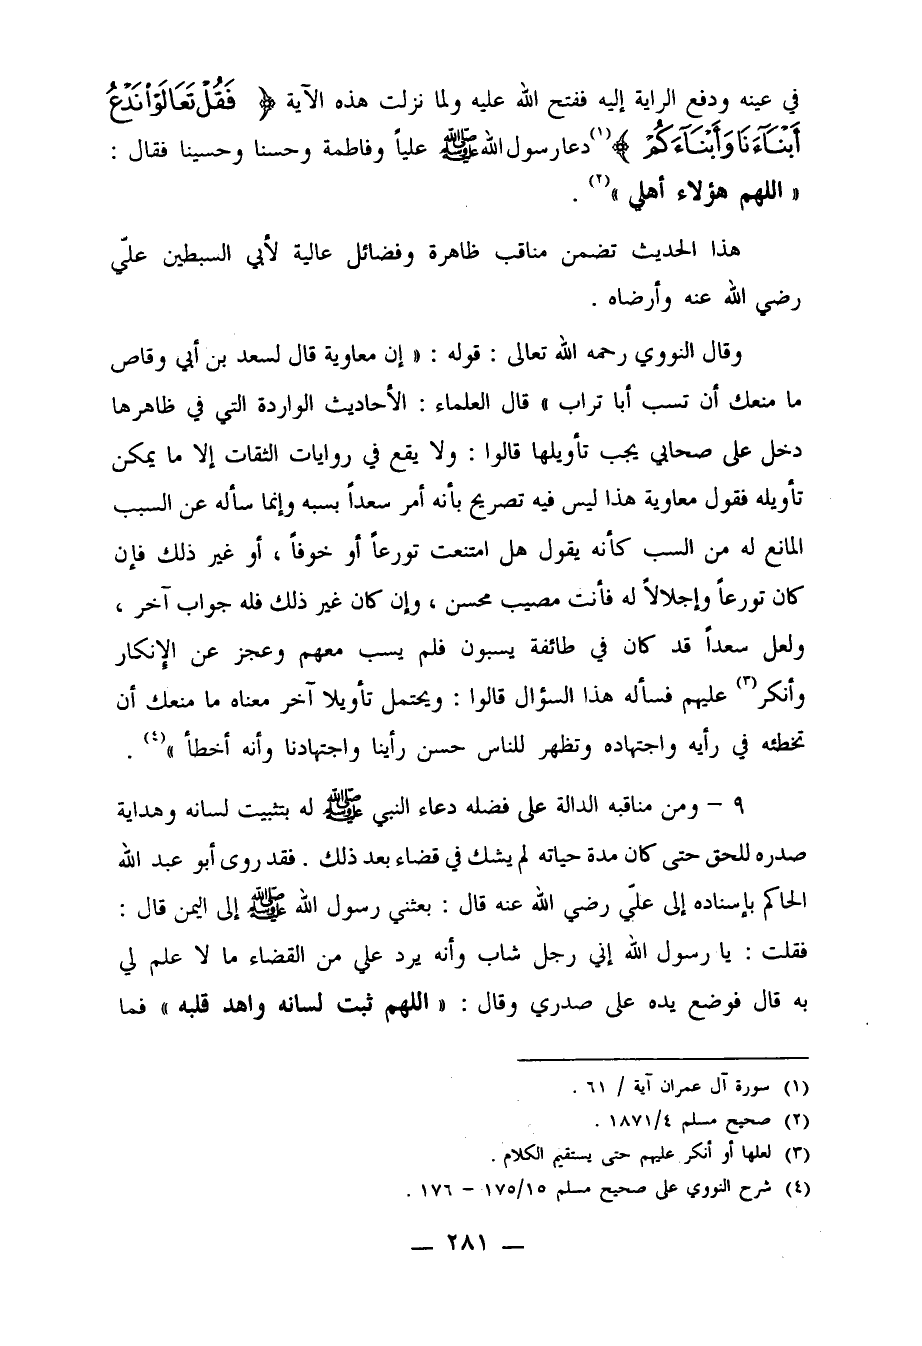 في عينه ودفع الراية إليه ففتح الله عليه ولما نزلت هذه الآية ﴿ فَقُلْ تَعَالَوْا نَدْعُ
أَبْنَآءَنَا وَأَبْنَآءَكُمْ ﴾(١) دعا رسول الله ﷺ علياً وفاطمة وحسنا وحسينا فقال :
« اللهم هؤلاء أهلي »(٢) .
هذا الحديث تضمن مناقب ظاهرة وفضائل عالية لأبي السبطين عليّ
رضي الله عنه وأرضاه .
وقال النووي رحمه الله تعالى : قوله : « إن معاوية قال لسعد بن أبي وقاص
ما منعك أن تسب أبا تراب » قال العلماء : الأحاديث الواردة التي في ظاهرها
دخل على صحابي يجب تأويلها قالوا : ولا يقع في روايات الثقات إلا ما يمكن
تأويله فقول معاوية هذا ليس فيه تصريح بأنه أمر سعداً بسبه وإنما سأله عن السبب
المانع له من السب كأنه يقول هل امتنعت تورعاً أو خوفاً ، أو غير ذلك فإن
كان تورعاً وإجلالاً له فأنت مصيب محسن ، وإن كان غير ذلك فله جواب آخر ،
ولعل سعداً قد كان في طائفة يسبون فلم يسب معهم وعجز عن الإنكار
وأنكر(٣) عليهم فسأله هذا السؤال قالوا : ويحتمل تأويلا آخر معناه ما منعك أن
تخطئه في رأيه واجتهاده وتظهر للناس حسن رأينا واجتهادنا وأنه أخطأ »(٤) .
٩ – ومن مناقبه الدالة على فضله دعاء النبي ﷺ له بتثبيت لسانه وهداية
صدره للحق حتى كان مدة حياته لم يشك في قضاء بعد ذلك . فقد روى أبو عبد الله
الحاكم بإسناده إلى عليّ رضي الله عنه قال : بعثني رسول الله ﷺ إلى اليمن قال :
فقلت : يا رسول الله إني رجل شاب وأنه يرد علي من القضاء ما لا علم لي
به قال فوضع يده على صدري وقال : « اللهم ثبت لسانه واهد قلبه » فما
(١) سورة آل عمران آية / ٦١ .
(٢) صحيح مسلم ١٨٧١/٤ .
(٣) لعلها أو أنكر عليهم حتى يستقيم الكلام .
(٤) شرح النووي على صحيح مسلم ١٧٥/١٥ – ١٧٦ .
— ٢٨١ —